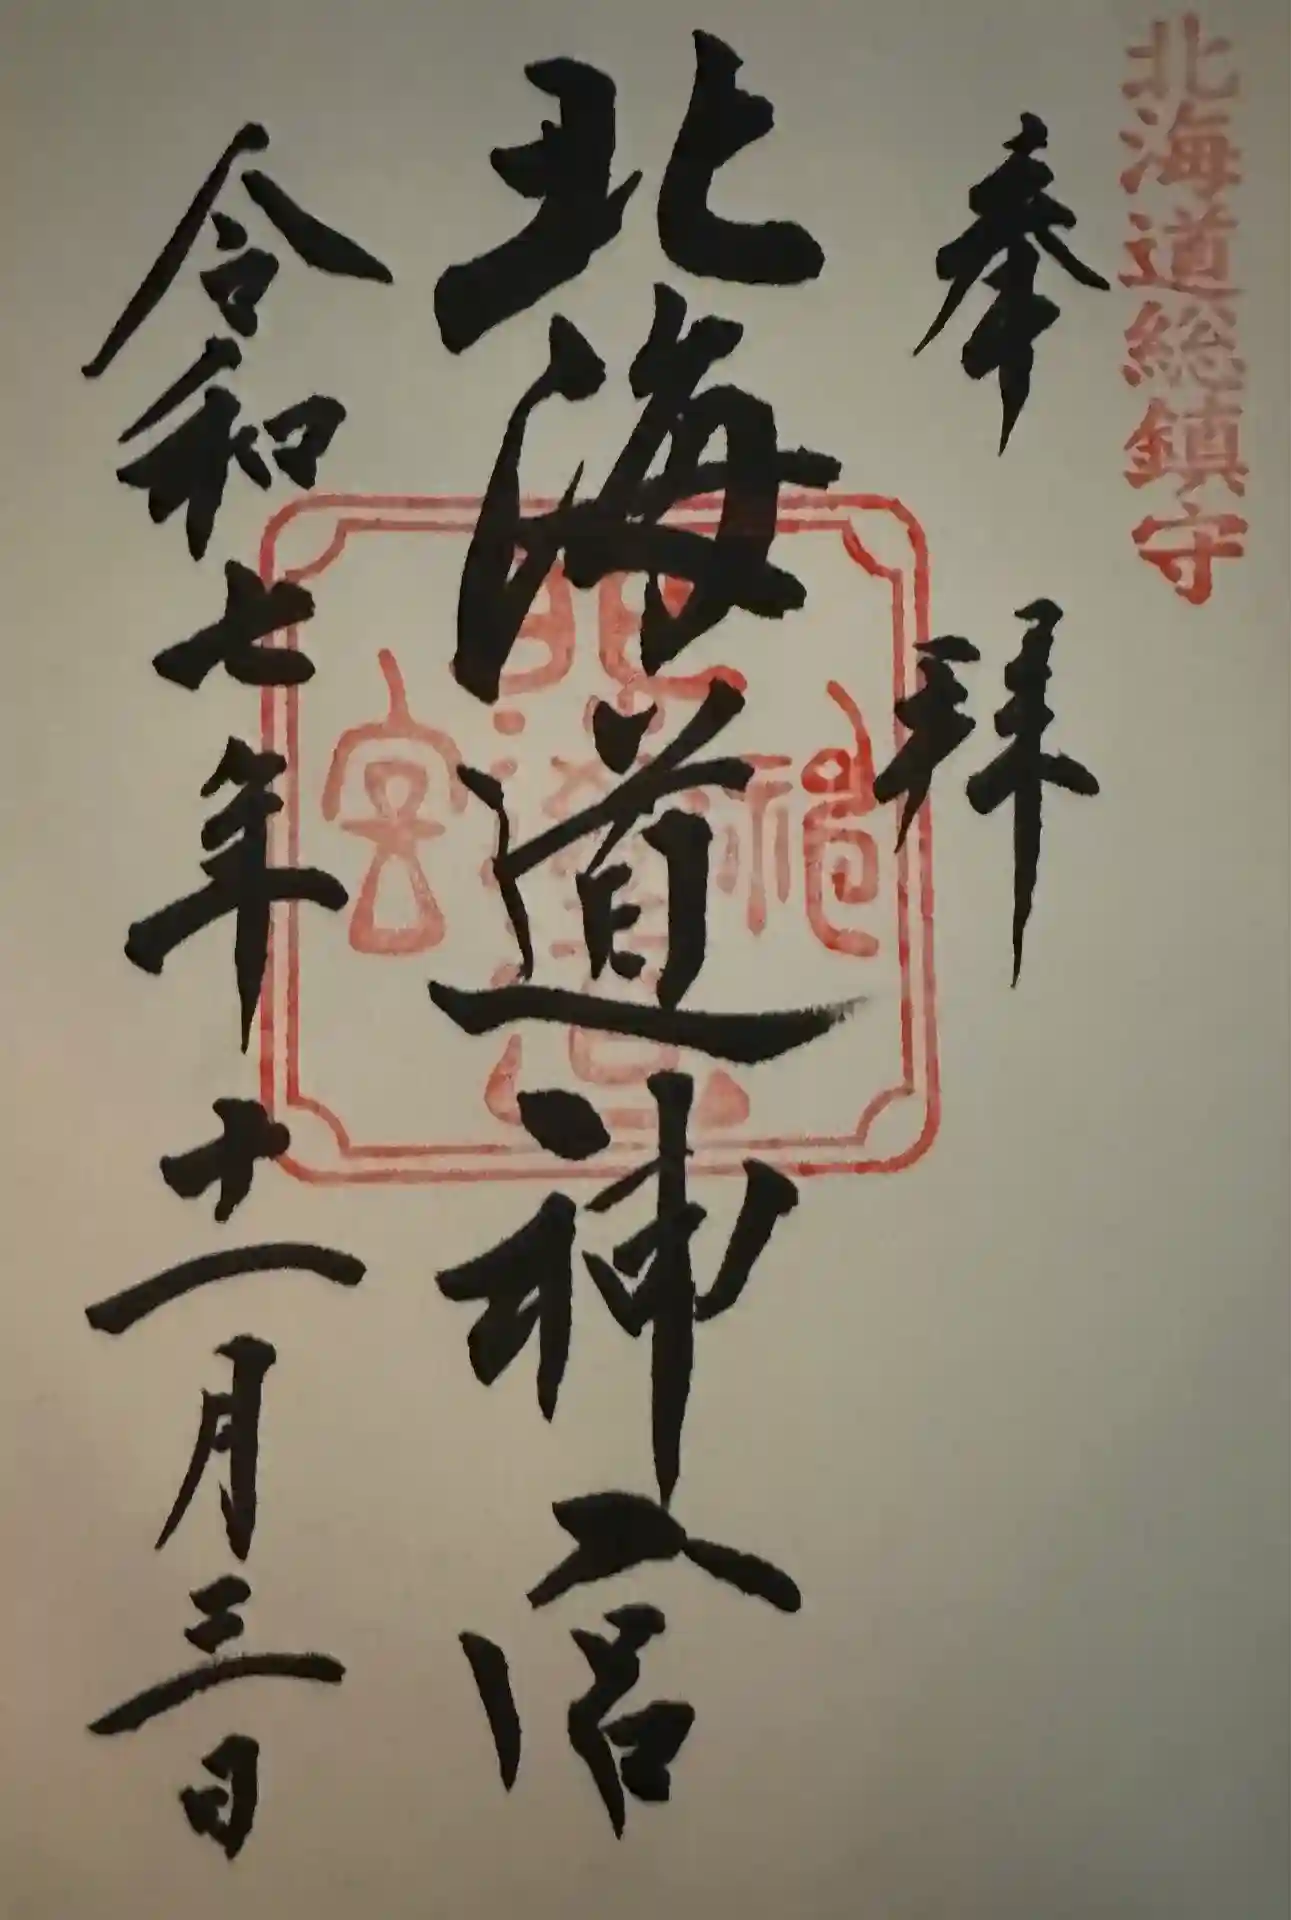 北海道総鎮守
奉拝
北海道神宮
令和七年十一月三日
北海道神宮